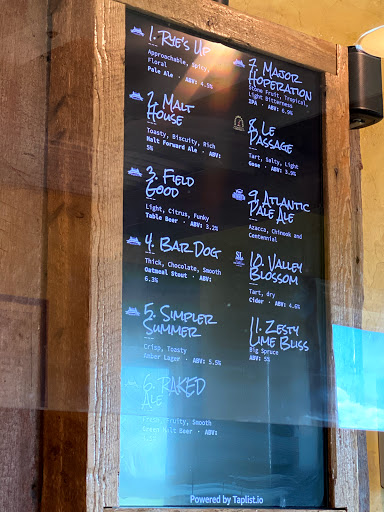 1. Rye's Up
Approachable, Spicy,
Floral
Pale Ale · ABV: 4.5%
2. Malt
House
Toasty, Biscuity, Rich
Malt Forward Ale · ABV:
5%
3. Field
Good
Light, Citrus, Funky
Table Beer · ABV: 3.2%
4. Bar Dog
Thick, Chocolate, Smooth
Oatmeal Stout · ABV:
6.3%
5. Simpler
Summer
Crisp, Toasty
Amber Lager · ABV: 5.5%
6. RAKED
Ale
Fruity, Smooth
Green Malt Beer · ABV:
7. Major
Hoperation
Stone Fruit, Tropical,
Light Bitterness
IPA · ABV: 6.9%
8. Le
Passage
Tart, Salty, Light
Gose · ABV: 3.9%
9. Atlantic
Pale Ale
Azacca, Chinook and
Centennial
10. Valley
Blossom
Tart, dry
Cider · ABV: 4.6%
11. Zesty
Lime Bliss
Big Spruce
ABV: 5%
Powered by Taplist.io